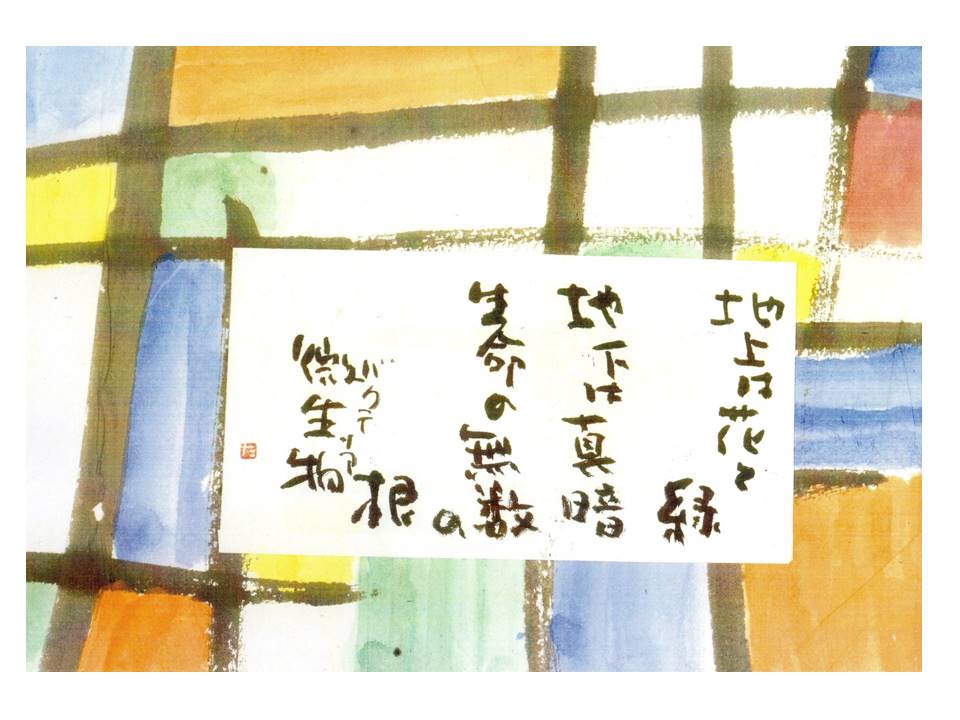 地上は花と
緑
地下は真暗
生命の無数
の
根
バクテリア
微生物